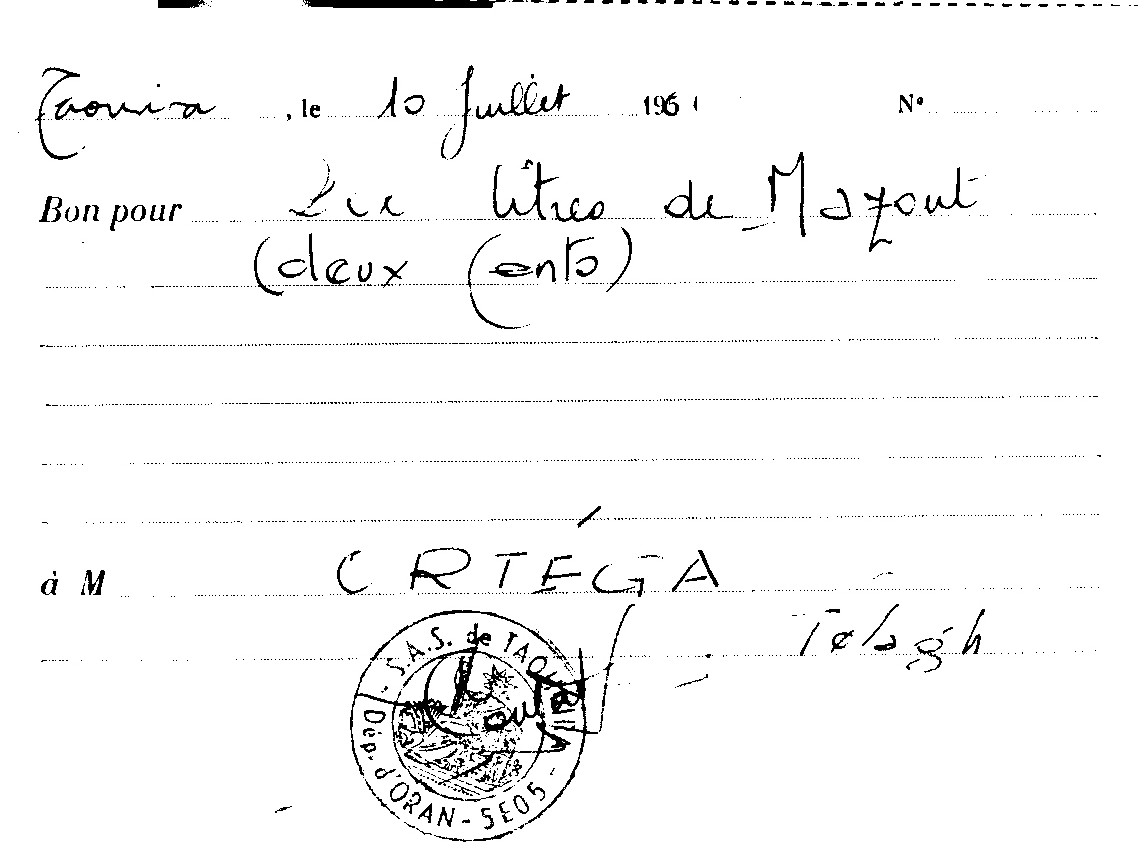 Taouira, le 10 Juillet 1961 N°
Bon pour 200 litres de Mazout
(deux Cents)
à M ORTÉGA
Télagh
S.A.S. de TAOUIRA
Dép. d'ORAN - SE05 -